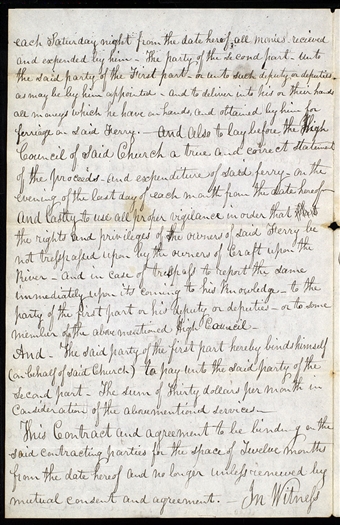 each Saturday night from the date hereof, all monies recieved
and expended by him - The party of the second part - unto
the said party of the First part - or unto such deputy or deputies
as may be by him appointed - and to deliver into his or their hands
all moneys which he have on hands, and attained by him for
ferriage on said Ferry. - And also to lay before the High
Council of said Church a true and correct statement
of the proceeds - and expenditure of said ferry - on the
evening of the last day of each month from the date hereof -
And lastly to use all proper vigilance in order that
the rights and privileges of the owners of said Ferry be
not tresspassed upon by the owners of Craft upon the
River - And in case of trespass to report the same
immediately upon its coming to his Knowledge - to the
party of the first part or his deputy or deputies - or to some
member of the abovementioned High Council -
And - The said party of the first part hereby binds himself
(on behalf of said Church) to pay unto the said party of the
second part - The sum of Thirty dollars per month in
Consideration of the abovementioned services -
This Contract and agreement to be binding on the
said contracting parties for the space of Twelve months
from the date hereof and no longer unless renewed by
mutual consent and agreement. - In Witness